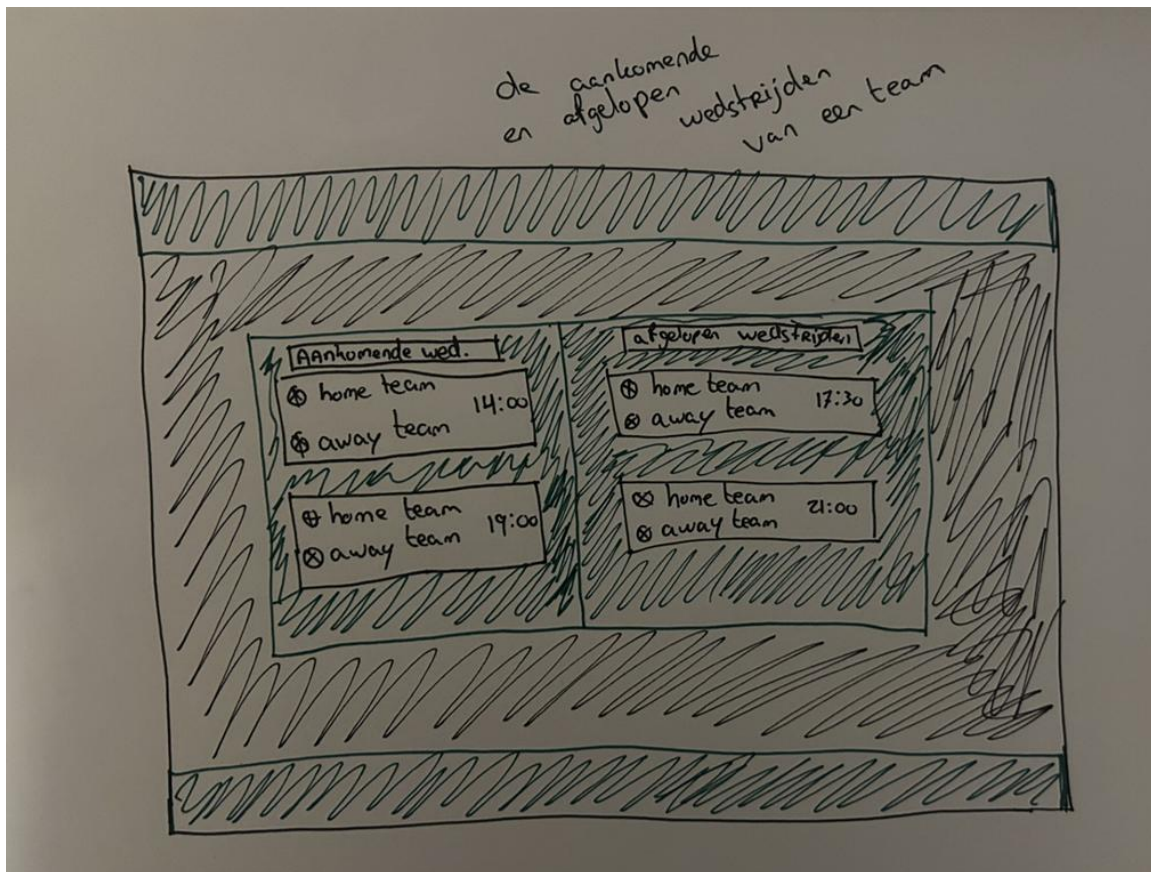 de aankomende
en afgelopen wedstrijden
van een team
Aankomende wed.
home team
away team
14:00
home team
away team
19:00
afgelopen wedstrijden
home team
away team
17:30
home team
away team
21:00